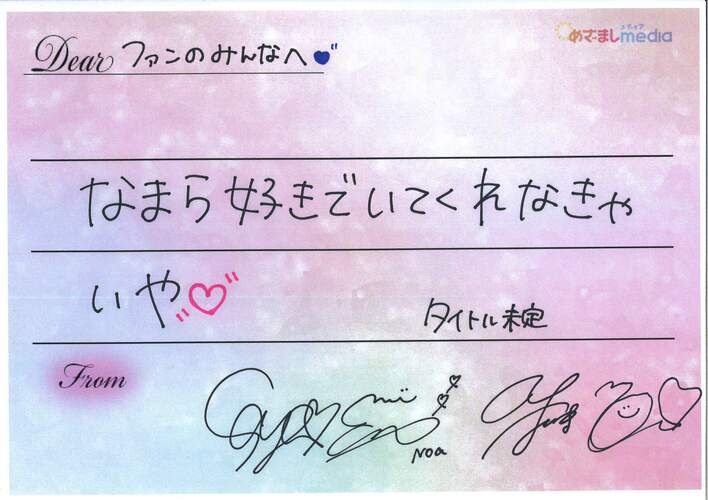 Dear ファンのみんなへ
メディア
めざましmedia
なまら好きでいてくれなきゃ
いや
タイトル未定
From
Noa